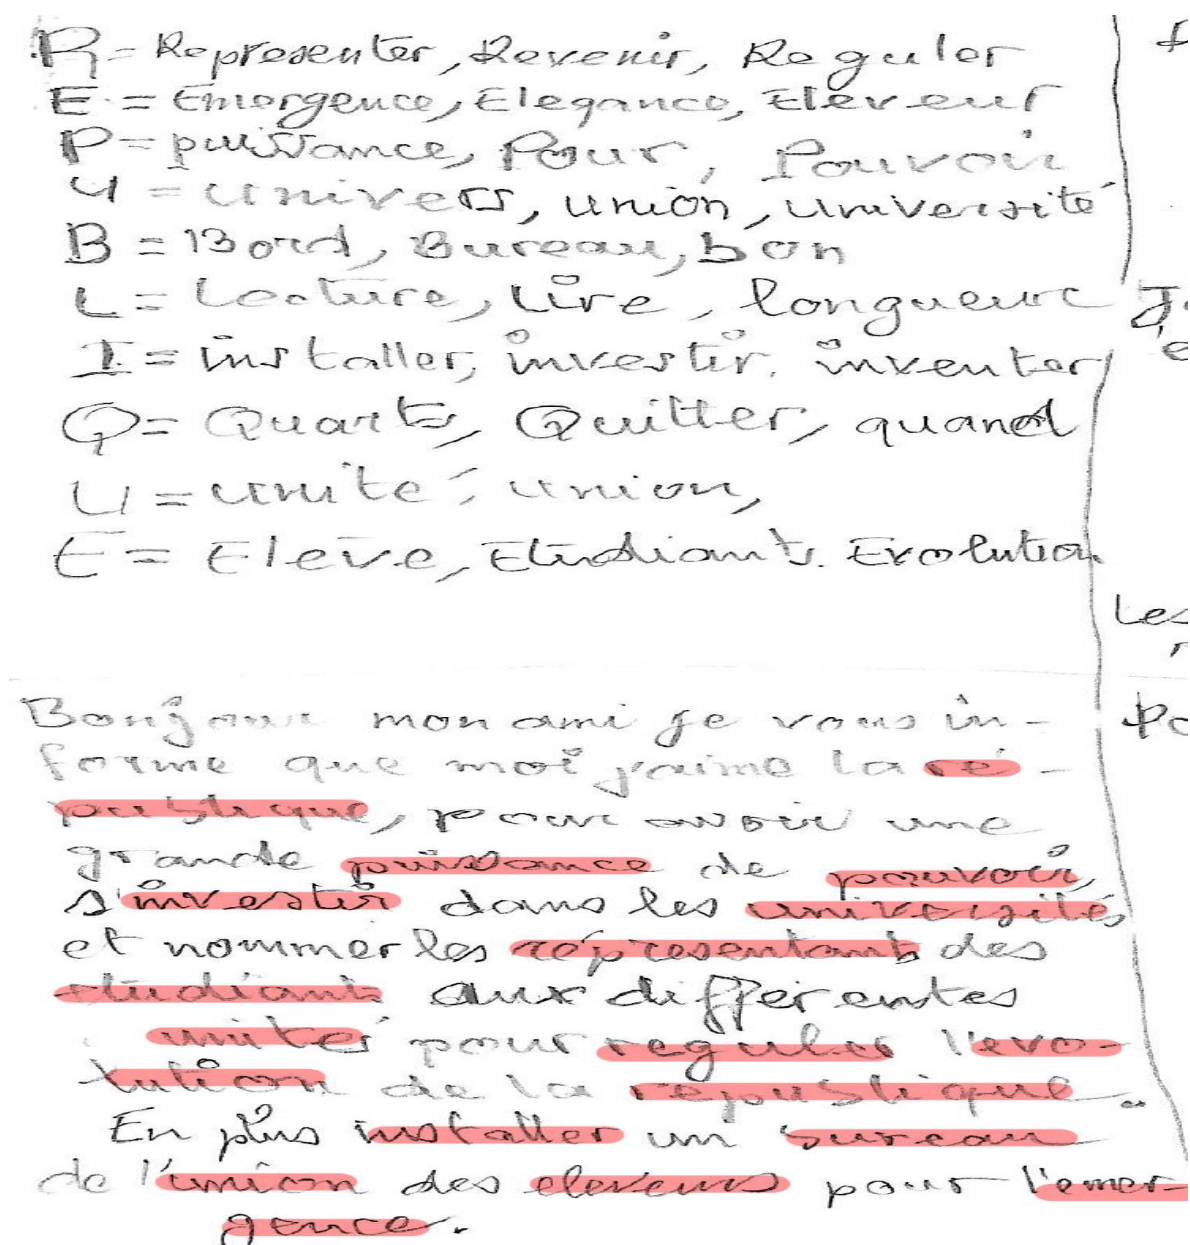 R = Representer, Revenir, Reguler
E = Emergence, Elegance, Eleveur
P = puissance, Pour, Pouvoir
U = univers, union, université
B = Bord, Bureau, bon
L = Lecture, Lire, longueur
I = installer, investir, inventer
Q = Quartz, Quitter, quand
U = unité, union,
E = Eleve, Etudiants. Evolution
Les
Bonjour mon ami je vous in-
forme que moi j'aime la ré-
publique, pour avoir une
grande puissance de pouvoir,
s'investir dans les universités,
et nommer les réprésentants des
etudiants aux differentes
unités pour reguler l'evo-
lution de la republique.
En plus installer un bureau
de l'union des eleveurs pour l'emer-
gence.